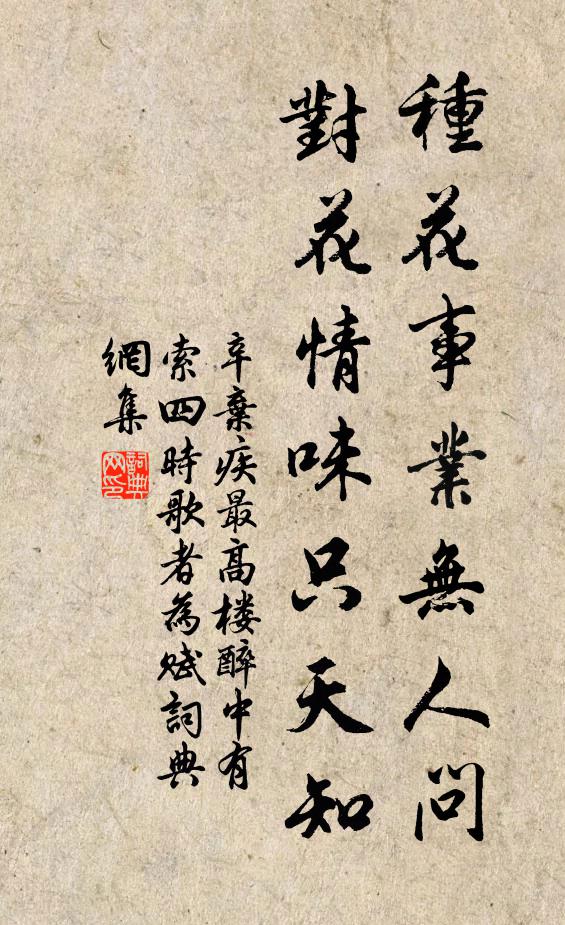 種花事業無人問
對花情味只天知
辛棄疾最高楼醉中有
索四時歌者為賦詞典
網集
詞典
网印